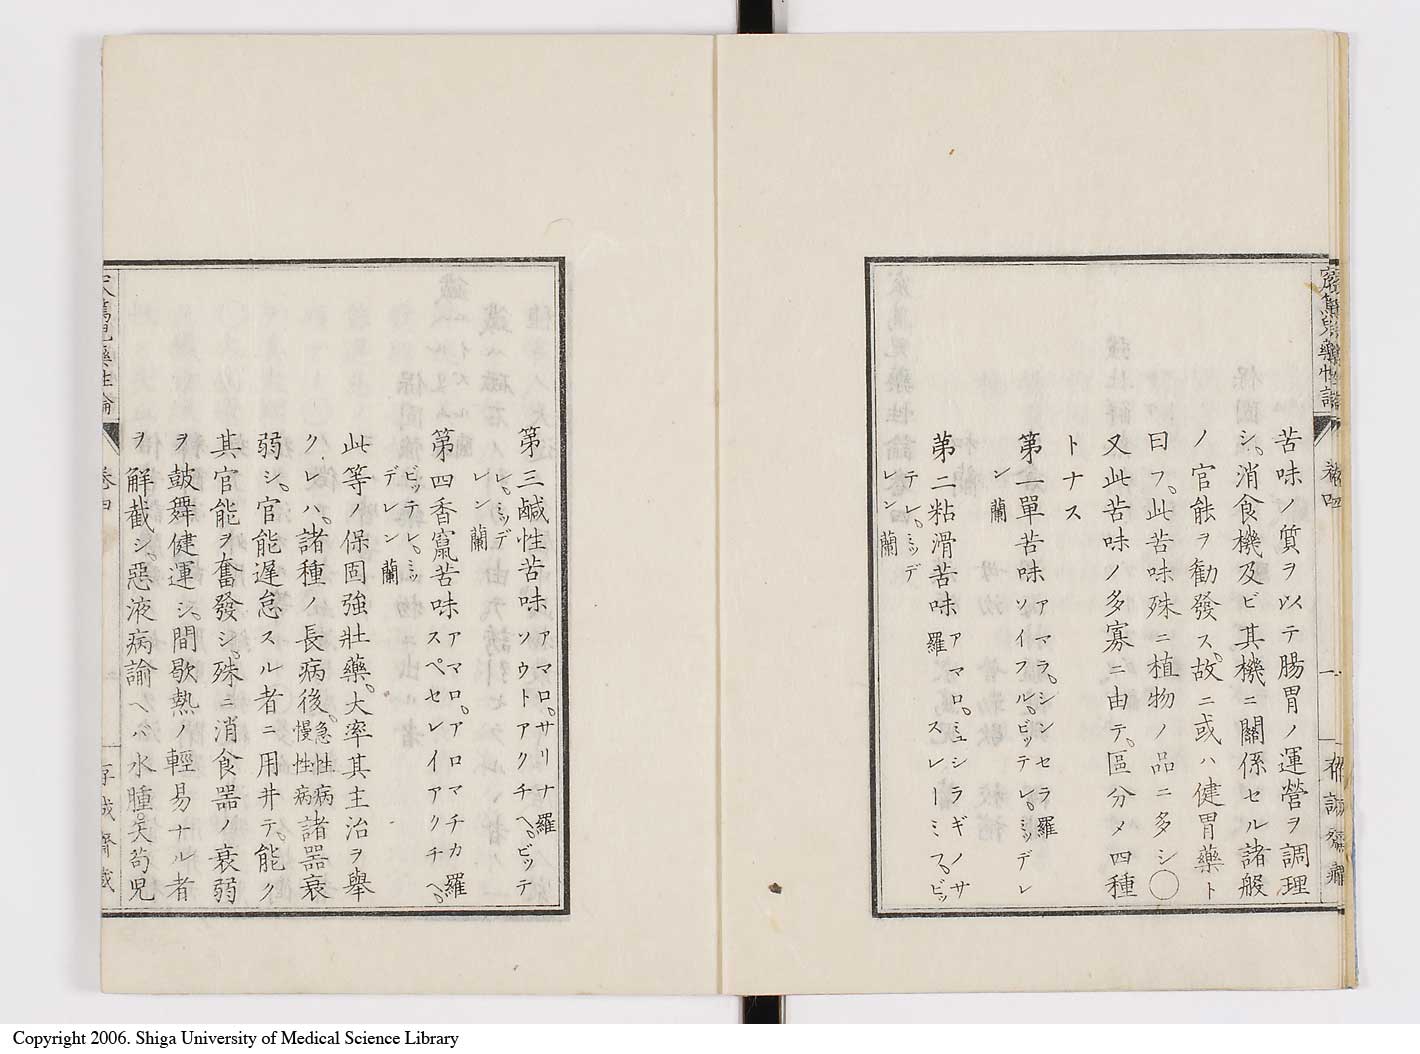 窊篤児藥性論
卷四
一
存誠齋藏
苦味ノ質ヲ以テ腸胃ノ運營ヲ調理
シ。消食機及ビ其機ニ關係セル諸般
ノ官能ヲ勸發ス。故ニ或ハ健胃藥ト
曰フ。此苦味殊ニ植物ノ品ニ多シ〇
又此苦味ノ多寡ニ由テ。區分メ四種
トナス
第一單苦味アマラ。シンセラ羅
ソイフル。ビッテレ。ミッデレ
ン蘭
第二粘滑苦味アマロ。ミュシラギノサ
羅　スレーミフ。ビッ
テレ。ミッデ
レン蘭
第三鹹性苦味アマロ。サリナ羅
ソウトアクチヘ。ビッテ
レ。ミッデ
レン蘭
第四香竄苦味アマロ。アロマチカ羅
スペセレイアクチヘ。
ビッテレ。ミッ
デレン蘭
此等ノ保固強壯藥。大率其主治ヲ舉
クレハ。諸種ノ長病後急性病。慢性病諸器衰
弱シ。官能遲怠スル者ニ用井テ。能ク
其官能ヲ奮發シ。殊ニ消食器ノ衰弱
ヲ鼓舞健運シ。間歇熱ノ輕易ナル者
ヲ解截シ。惡液病諭ヘハ水腫。矢苟児
藥性論
卷四
存誠齋藏
Copyright 2006. Shiga University of Medical Science Library